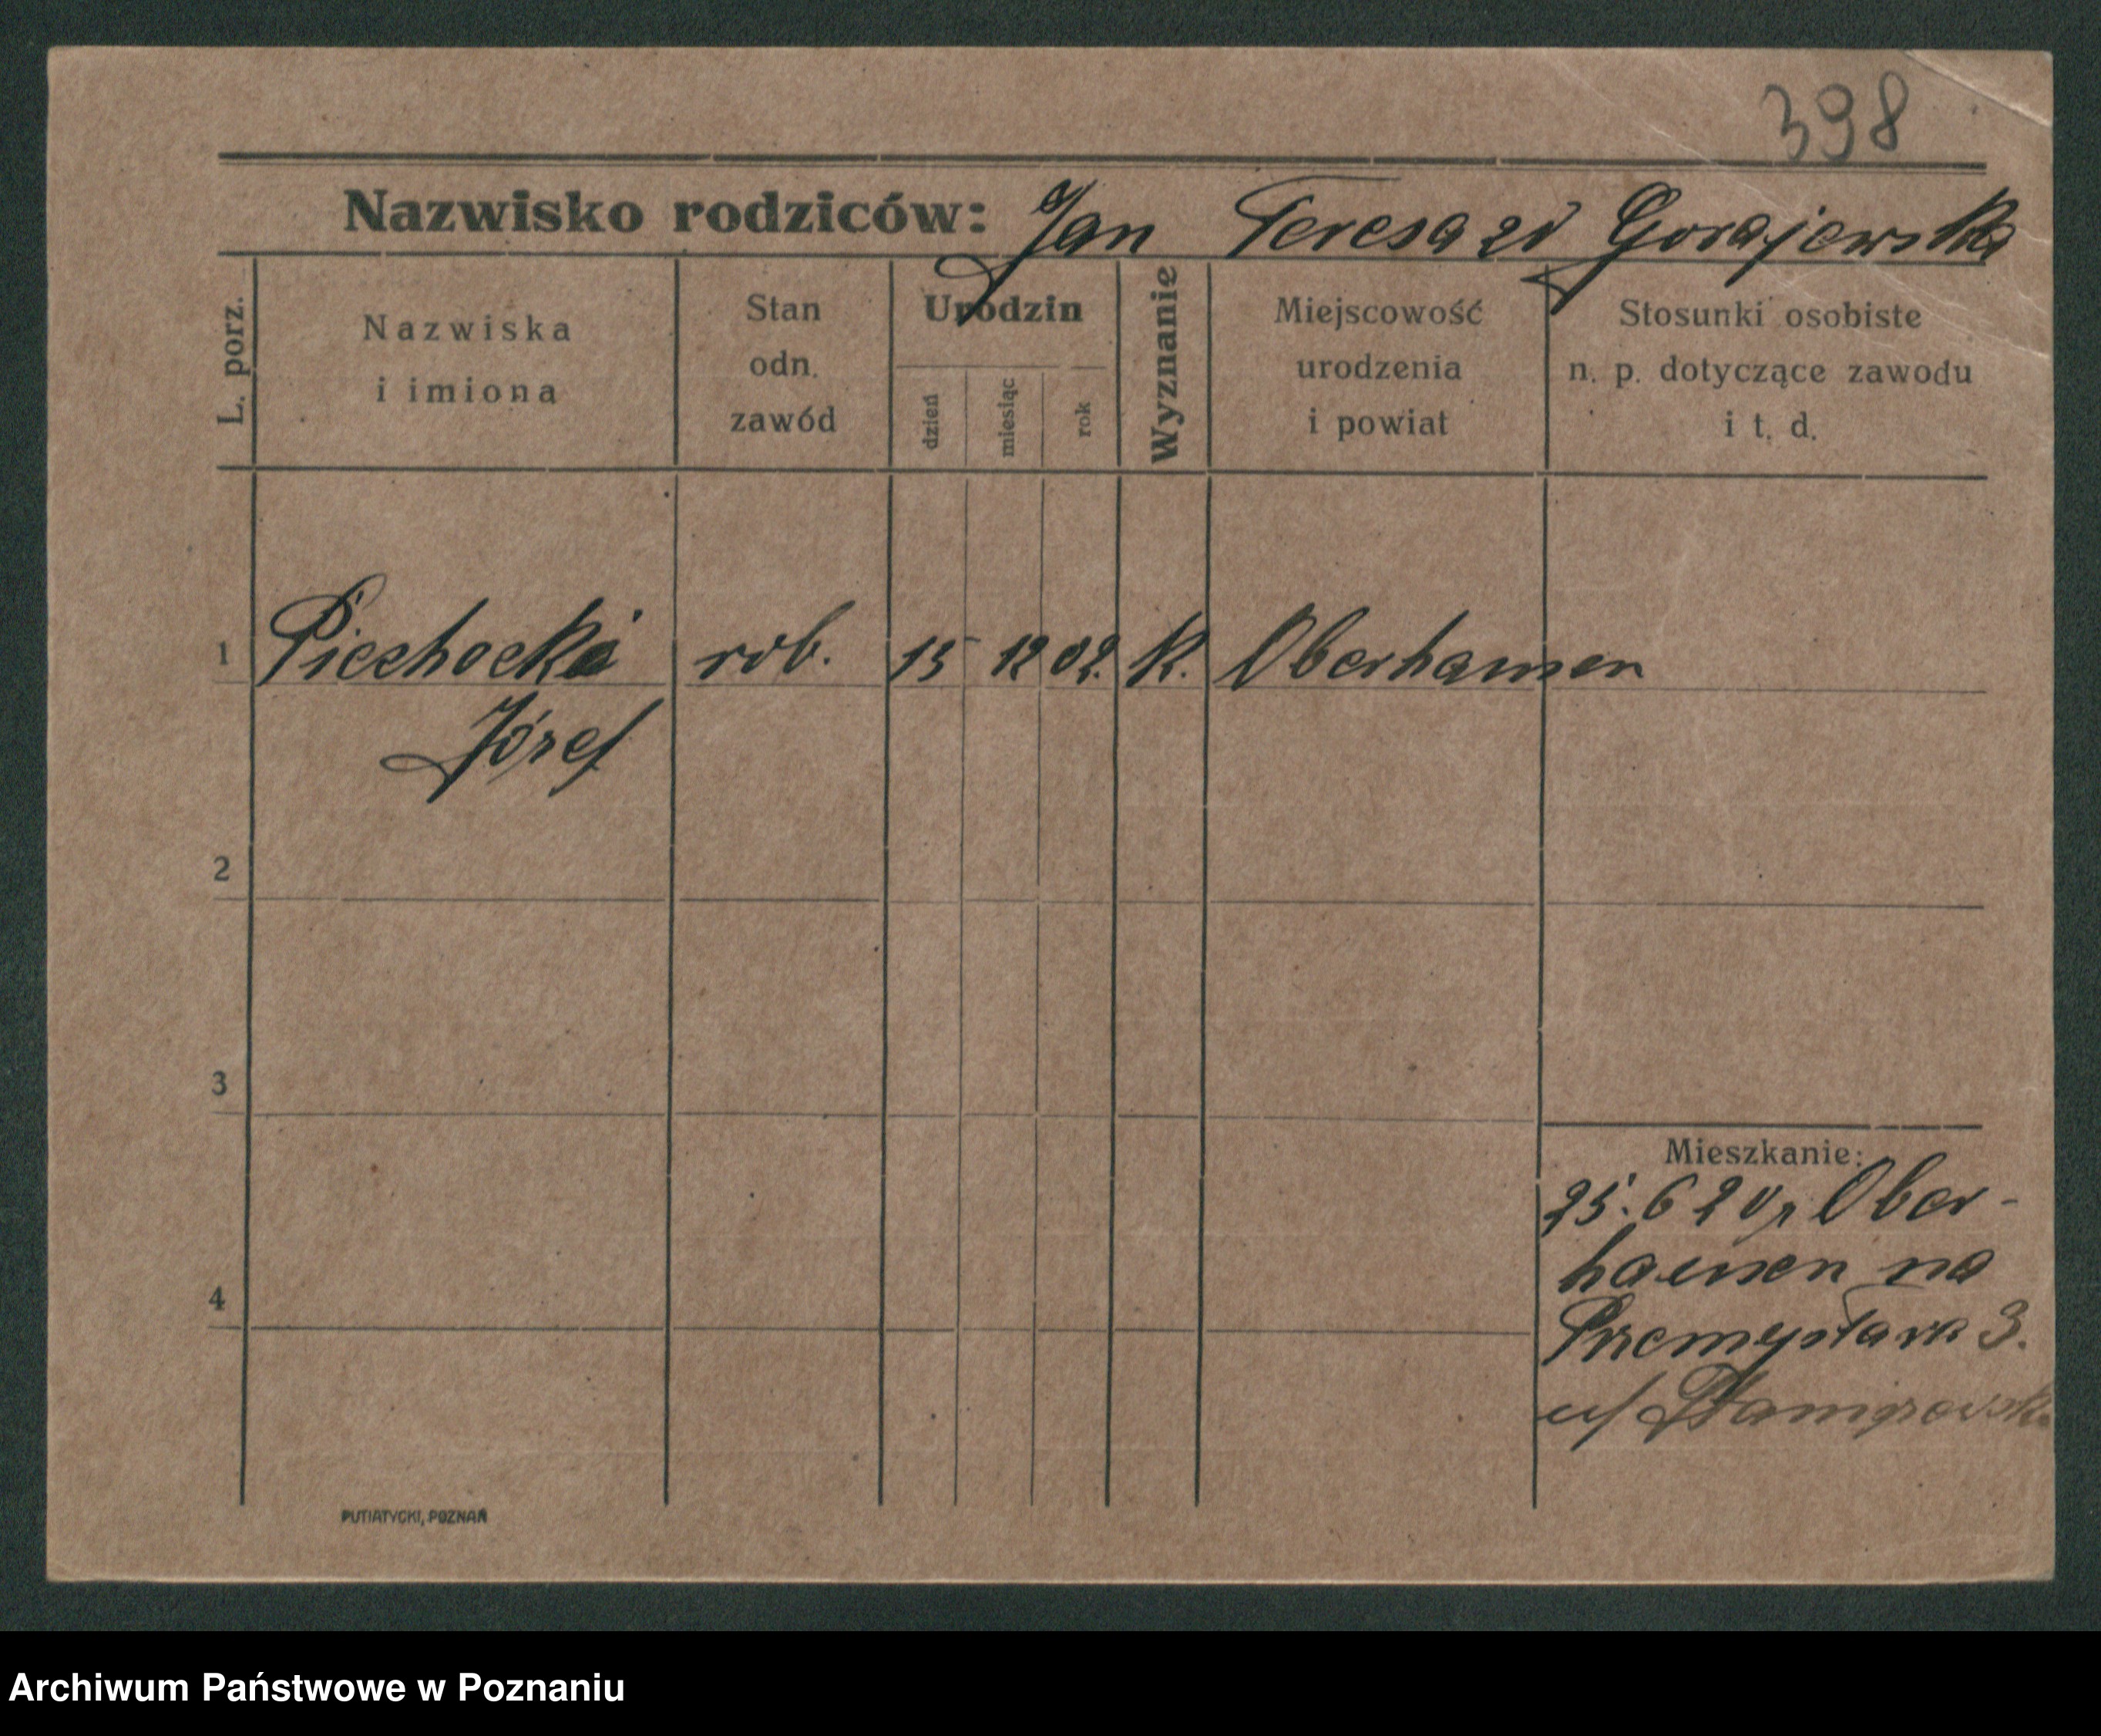 398
Nazwisko rodziców: Jan Teresa zd Gorajewska
L. porz.
Nazwiska
i imiona
Stan
odn.
zawód
Urodzin
dzień
miesiąc
rok
Wyznanie
Miejscowość
urodzenia
i powiat
Stosunki osobiste
n. p. dotyczące zawodu
i t. d.
1 Piechocki rob. 15 12 02. k. Oberhausen
Józef
2
3
4
Mieszkanie:
25. 6 20 Ober-
hausen na
Przemysława 3.
u/
PUTIATYCKI, POZNAŃ
Archiwum Państwowe w Poznaniu